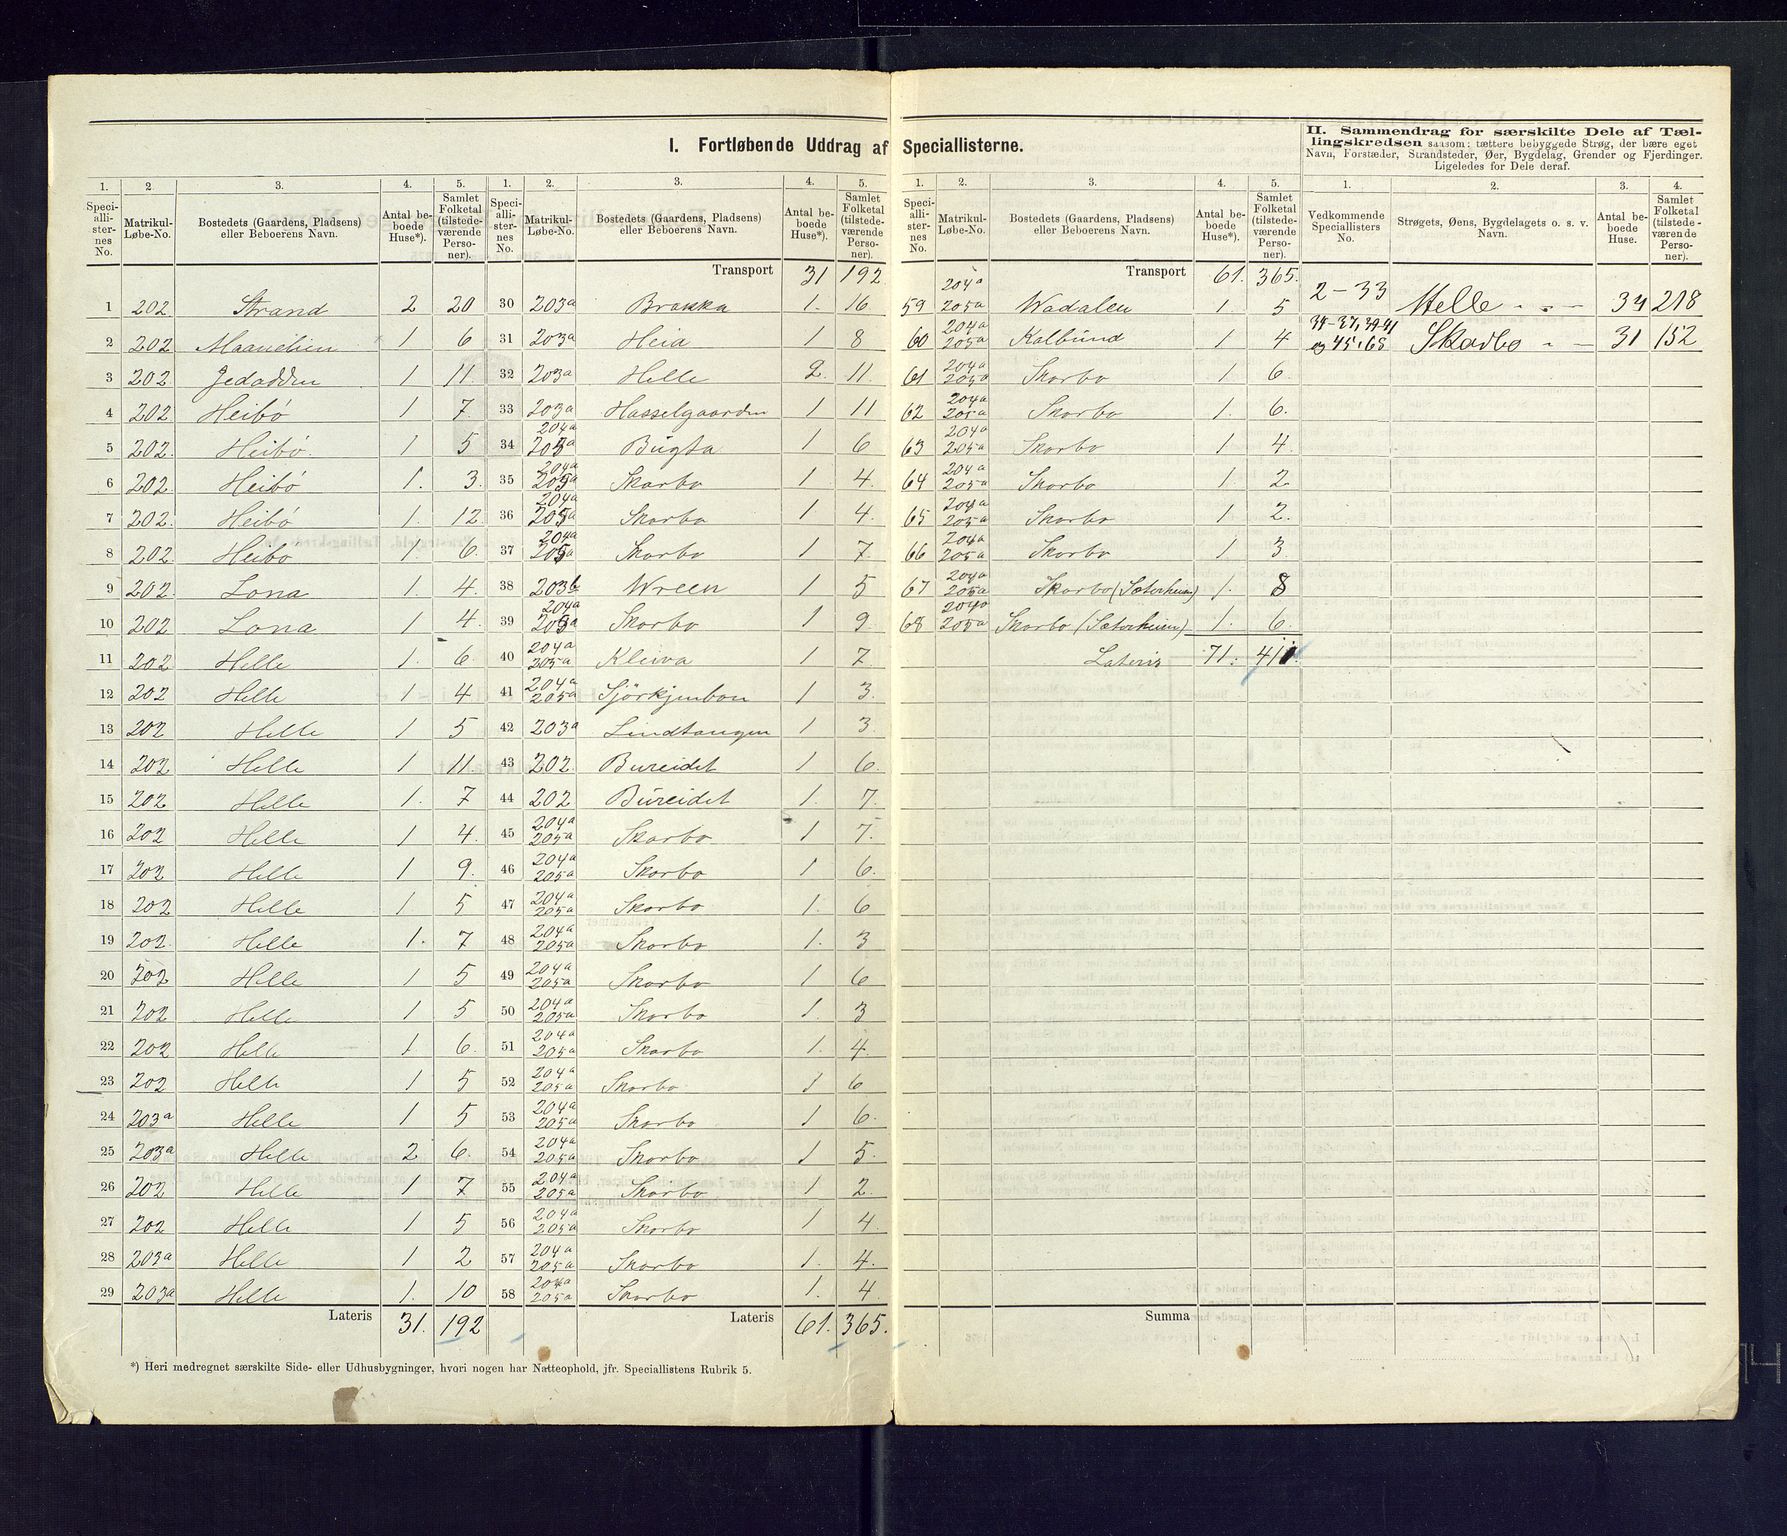 I. Fortløbende Uddrag af Speciallisterne.
II. Sammendrag for særskilte Dele af Tæl-
lingskredsen saasom: tættere bebyggede Strøg, der bære eget
Navn, Forstæder, Strandsteder, Øer, Bygdelag, Grender og Fjerdinger.
Ligeledes for Dele deraf.
1. 2. 3. 4. 5.
Speci-alli-ster-nes No. Matrikul-Løbe-No. Bostedets (Gaardens, Pladsens) eller Beboerens Navn. Antal be-boede Huse*). Samlet Folketal (tilstede-værende Perso-ner).
1 202. Strand 2 20
2 202 Maanelien 1 6
3 202 Jedadden 1 11
4 202 Heibö 1 7
5 202 Heibö. 1 5
6 202. Heibö 1. 3.
7 202. Heibö 1. 12.
8 202. Heibö 1. 6.
9 202. Lona 1 4.
10 202 Lona 1 4.
11 202 Helle 1. 6
12 202 Helle 1 4
13 202 Helle 1 5
14 202 Helle 1 11.
15 202 Helle 1. 7
16 202 Helle 1 4.
17 202 Helle 1 9.
18 202 Helle 1 5
19 202. Helle 1. 7
20 202 Helle 1 5
21 202 Helle 1 5
22 202 Helle 1 6.
23 202 Helle 1 5
24 203a Helle 1 5
25 203a Helle 2 6.
26 202 Helle 1 7
27 202 Helle 1 5
28 203a Helle 1 2
29 203a Helle 1. 10
Lateris 31. 192
1. 2. 3. 4. 5.
Speci-alli-ster-nes No. Matrikul-Løbe-No. Bostedets (Gaardens, Pladsens) eller Beboerens Navn. Antal be-boede Huse*). Samlet Folketal (tilstede-værende Perso-ner).
Transport 31 192
30 203a Brakka 1. 16
31 203a Heia 1 8
32 203a Helle 2. 11.
33 203a Hasselgaarden 1 11
34 204a 205a Bugta 1 6
35 204a 205a Skarbo 1 4.
36 204a 205a Skorbo 1 4.
37 204a 205a Skorbo 1 7
38 203b Wreen 1 5
39 204a 205a Skorbo 1 9.
40 204a 205a Kleiva 1 7.
41 204a 205a Sjörkjenbon 1 3.
42 203a Lindtangen 1 3.
43 202. Bureidet 1 6.
44 202 Bureidet 1. 7.
45 204a 205a Skarbo 1 7.
46 204a 205a Skorbo 1 6.
47 204a 205a Skorbo 1. 6
48 204a 205a Skorbo 1. 3
49 204a 205a Skorbo 1 6
50 204a 205a Skorbo 1. 3
51 204a 205a Skorbo 1. 4.
52 204a 205a Skorbo 1 6
53 204a 205a Skorbo 1 6.
54 204a 205a Skorbo 1 5.
55 204a 205a Skorbo 1 2.
56 204a 205a Skorbo 1 4.
57 204a 205a Skorbo 1. 4.
58 204a 205a Skorbo 1. 4.
Lateris 61. 365.
1. 2. 3. 4. 5.
Speci-alli-ster-nes No. Matrikul-Løbe-No. Bostedets (Gaardens, Pladsens) eller Beboerens Navn. Antal be-boede Huse*). Samlet Folketal (tilstede-værende Perso-ner).
Transport 61. 365.
59 204a 205a Wadalen 1 5
60 204a 205a Kalbund 1 4
61 204a 205a Skorbo 1 6.
62 204a 205a Skorbo 1. 6.
63 204a 205a Skorbo 1 4.
64 204a 205a Skorbo 1. 2
65 204a 205a Skorbo 1 2.
66 204a 205a Skorbo 1 3.
67 204a 205a Skorbo (Sæterheien) 1. 8
68 204a 205a Skorbo (Sæterheien) 1. 6.
Lateris 71. 411.
Summa
1. 2. 3. 4.
Vedkommende Speciallisters No. Strøgets, Øens, Bygdelagets o. s. v. Navn. Antal be-boede Huse. Samlet Folketal (tilstede-værende Perso-ner).
2-33 Helle 34 218
34-37, 39-41 og 45, 68 Skarbo 31 152
*) Heri medregnet særskilte Side- eller Udhusbygninger, hvori nogen har Natteophold, jfr. Speciallistens Rubrik 5.